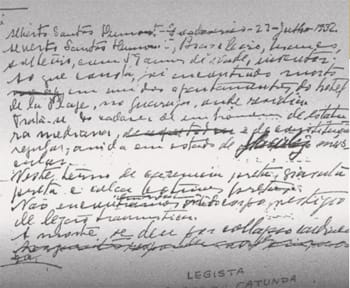 Alberto Santos Dumont - 23 - Julho 1932.
Alberto Santos Dumont, Brasileiro, homem,
solteiro, com 59 annos de idade, inventor.
Ao que consta, foi encontrado morto
em um dos apartamentos do hotel
de la Plage, no Guarujá, onde residia
Trata-se do cadaver de um homem de estatu
ra mediana, e de constituição
regular, ainda em estado de mus
cular.
Veste, terno de casemira preta, gravata
preta e calça
Não encontramos corpo, vestigio
de lesões traumaticas.
A morte, se deu por collapso cardia
LEGISTA
CATUNDA